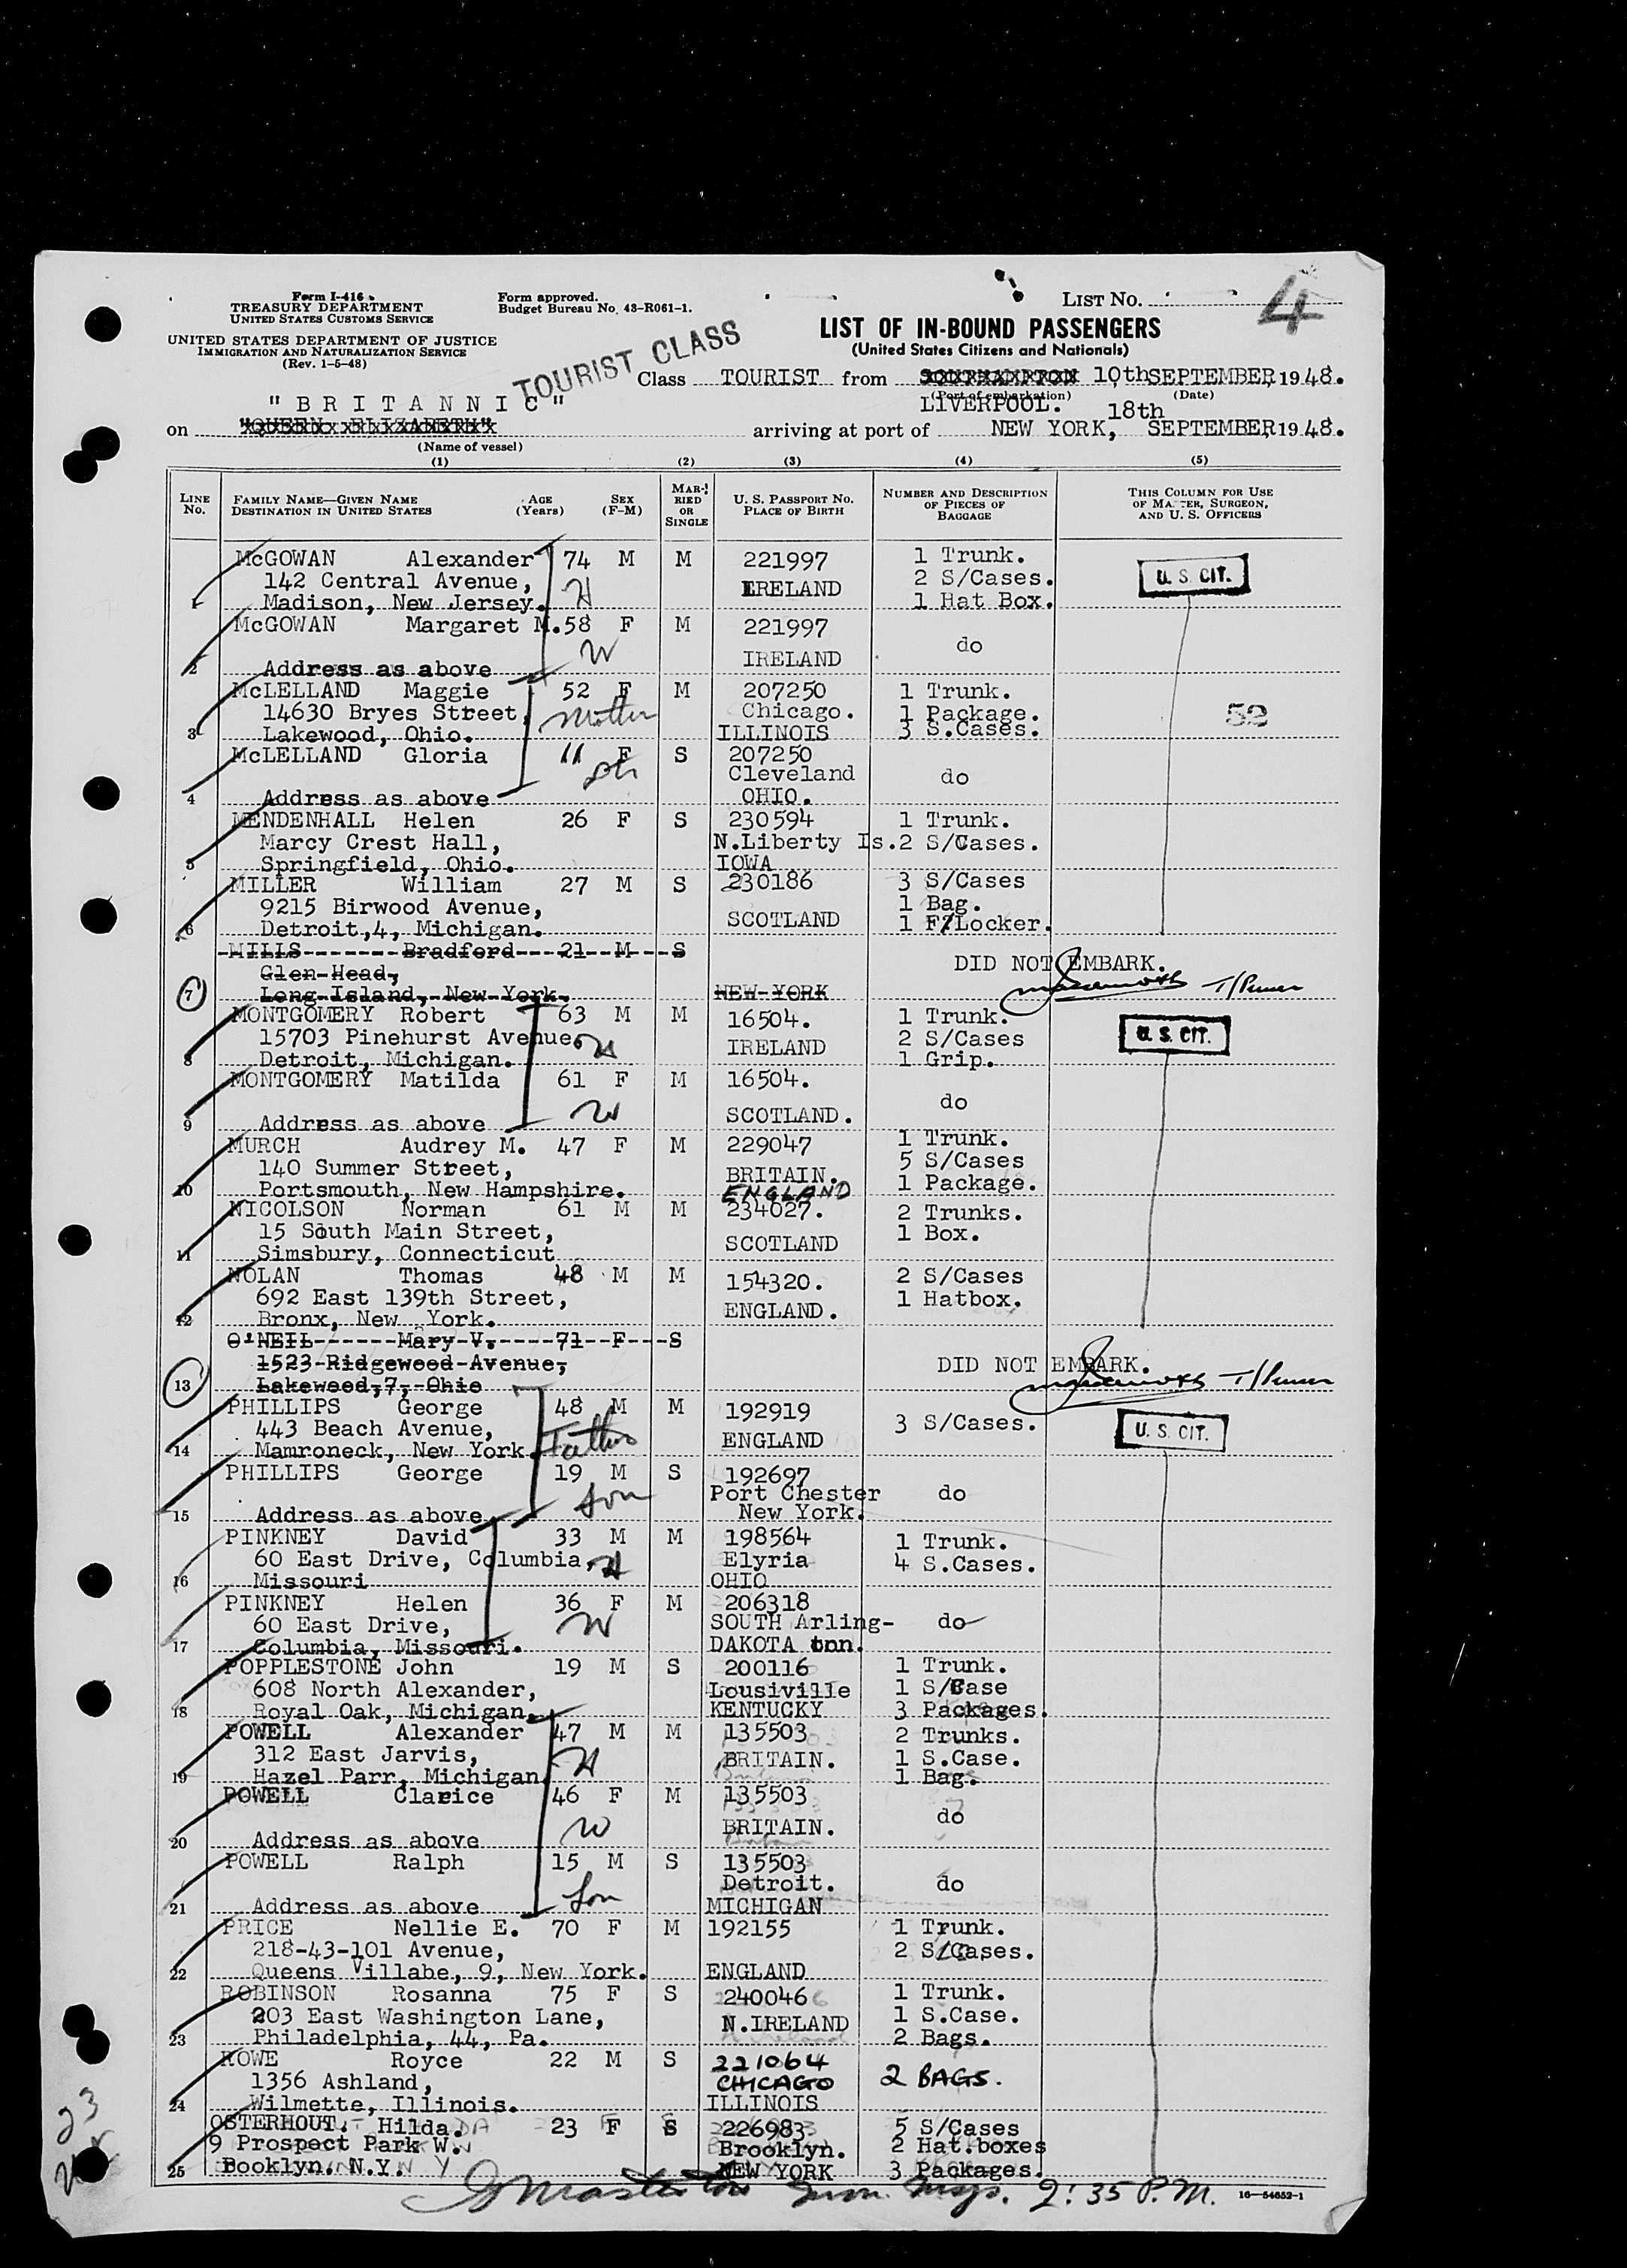 Form I-416
TREASURY DEPARTMENT
UNITED STATES CUSTOMS SERVICE
UNITED STATES DEPARTMENT OF JUSTICE
IMMIGRATION AND NATURALIZATION SERVICE
(Rev. 1-5-48)
Form approved.
Budget Bureau No. 43-R061-1.
TOURIST CLASS
LIST NO. 4
LIST OF IN-BOUND PASSENGERS
(United States Citizens and Nationals)
Class TOURIST from SOUTHAMPTON 10th SEPTEMBER, 1948.
(Port of embarkation) (Date)
LIVERPOOL.
"BRITANNIC"
18th
on "QUEEN ELIZABETH" arriving at port of NEW YORK, SEPTEMBER 1948.
(Name of vessel)
(1) (2) (3) (4) (5)
LINE No. FAMILY NAME—GIVEN NAME DESTINATION IN UNITED STATES AGE (Years) SEX (F-M) MARRIED OR SINGLE U. S. PASSPORT NO. PLACE OF BIRTH NUMBER AND DESCRIPTION OF PIECES OF BAGGAGE THIS COLUMN FOR USE OF MASTER, SURGEON, AND U. S. OFFICERS
McGOWAN Alexander 74 M M 221997 1 Trunk.
142 Central Avenue, H IRELAND 2 S/Cases. U. S. CIT.
1 Madison, New Jersey. 1 Hat Box.
McGOWAN Margaret M. 58 F M 221997
W do
2 Address as above IRELAND
McLELLAND Maggie 52 F M 207250 1 Trunk.
14630 Bryes Street, Mother Chicago. 1 Package. 52
3 Lakewood, Ohio. ILLINOIS 3 S.Cases.
McLELLAND Gloria 11 F S 207250
Cleveland do
4 Address as above OHIO.
MENDENHALL Helen 26 F S 230594 1 Trunk.
Marcy Crest Hall, N.Liberty Is. 2 S/Cases.
5 Springfield, Ohio. IOWA
MILLER William 27 M S 230186 3 S/Cases
9215 Birwood Avenue, 1 Bag.
6 Detroit,4, Michigan. SCOTLAND 1 F/Locker.
MILLS Bradford 21 M S
Glen Head, DID NOT EMBARK.
7 Long Island, New York. NEW YORK T/Purser
MONTGOMERY Robert 63 M M 16504. 1 Trunk.
15703 Pinehurst Avenue. H IRELAND 2 S/Cases U. S. CIT.
8 Detroit, Michigan. 1 Grip.
MONTGOMERY Matilda 61 F M 16504.
W do
9 Address as above SCOTLAND.
MURCH Audrey M. 47 F M 229047 1 Trunk.
140 Summer Street, BRITAIN. 5 S/Cases
10 Portsmouth, New Hampshire. ENGLAND 1 Package.
NICOLSON Norman 61 M M 234027. 2 Trunks.
15 South Main Street, SCOTLAND 1 Box.
11 Simsbury, Connecticut
NOLAN Thomas 48 M M 154320. 2 S/Cases
692 East 139th Street, ENGLAND. 1 Hatbox.
12 Bronx, New York.
O'NEIL Mary V. 71 F S
1523 Ridgewood Avenue, DID NOT EMBARK.
13 Lakewood,7, Ohio T/Purser
PHILLIPS George 48 M M 192919 3 S/Cases.
443 Beach Avenue, Father ENGLAND U. S. CIT.
14 Mamroneck, New York.
PHILLIPS George 19 M S 192697
Son Port Chester do
15 Address as above New York.
PINKNEY David 33 M M 198564 1 Trunk.
60 East Drive, Columbia, H Elyria 4 S.Cases.
16 Missouri OHIO
PINKNEY Helen 36 F M 206318
60 East Drive, W SOUTH Arling- do
17 Columbia, Missouri. DAKOTA tnn.
POPPLESTONE John 19 M S 200116 1 Trunk.
608 North Alexander, Lousiville 1 S/Case
18 Royal Oak, Michigan. KENTUCKY 3 Packages.
POWELL Alexander 47 M M 135503 2 Trunks.
312 East Jarvis, H BRITAIN. 1 S.Case.
19 Hazel Parr, Michigan. 1 Bag.
POWELL Clarice 46 F M 135503
W BRITAIN. do
20 Address as above
POWELL Ralph 15 M S 135503
Son Detroit. do
21 Address as above MICHIGAN
PRICE Nellie E. 70 F M 192155 1 Trunk.
218-43-101 Avenue, 2 S/Cases.
22 Queens Villabe, 9, New York. ENGLAND
ROBINSON Rosanna 75 F S 240046 1 Trunk.
203 East Washington Lane, N.IRELAND 1 S.Case.
23 Philadelphia, 44, Pa. 2 Bags.
ROWE Royce 22 M S 221064
1356 Ashland, CHICAGO 2 BAGS.
24 Wilmette, Illinois. ILLINOIS
OSTERHOUT. Hilda. 23 F S 226983 5 S/Cases
9 Prospect Park W. Brooklyn. 2 Hat.boxes
25 Booklyn. N.Y. NEW YORK 3 Packages.
23
2:35 P.M. 16—54652-1